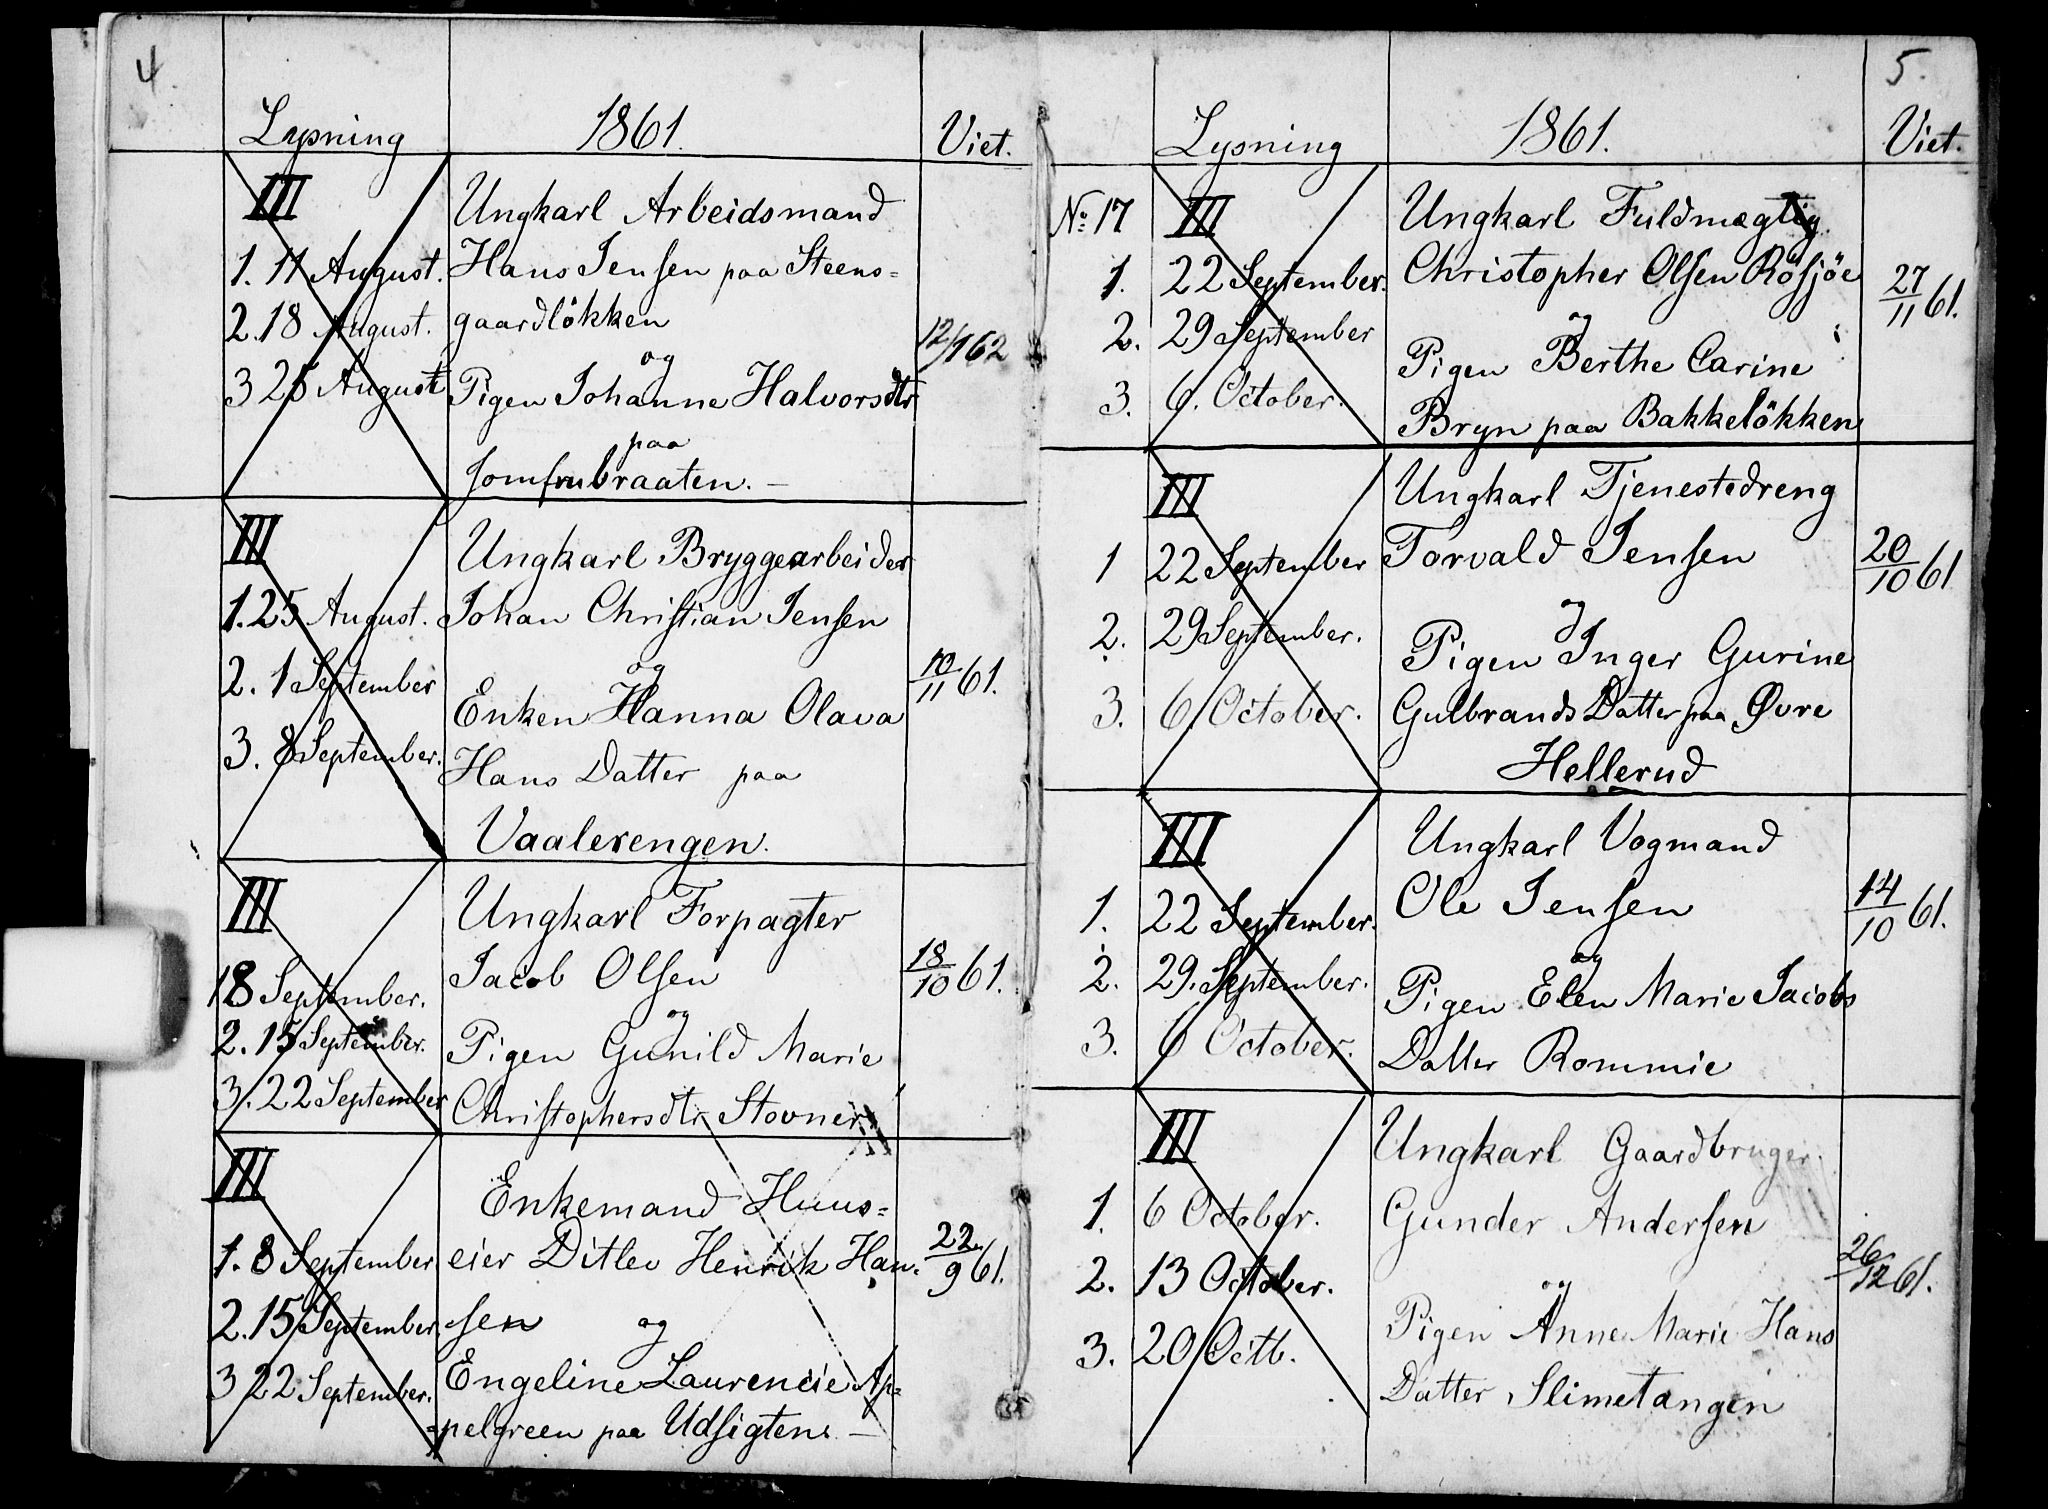 4.
Lysning 1861. Viet.
III Ungkarl Arbeidsmand
1. 11 August. Hans Jensen paa Steens=
2. 18 August. gaardlökken
og 12/1 62
3 25 August Pigen Johanne Halvorsdtr
paa
Jomfrubraaten. —
III Ungkarl Bryggearbeider
1. 25 August. Johan Christian Jensen
og
2. 1 September Enken Hanna Olava 10/11 61.
3. 8 September. Hans Datter paa
Vaalerengen.
III Ungkarl Forpagter
1 8 September. Jacob Olsen 18/10 61.
og
2. 15 September. Pigen Gunild Marie
3. 22 September Christophersdtr Stovner
III Enkemand Huus=
1. 8 September eier Ditlev Henrik Han= 22/9 61.
2. 15 September. sen og
3 22 September. Engeline Laurencie Ap=
pelgreen paa Udsigten. —
5.
Lysning 1861. Viet.
No. 17 III Ungkarl Fuldmægtig
1. 22 September. Christopher Olsen Rösjöe 27/11 61.
og
2. 29 September Pigen Berthe Carine
3. 6. October. Bryn paa Bakkelökken
III Ungkarl Tjenestedreng
1 22 September Torvald Jensen 20/10 61
og
2. 29 September. Pigen Inger Gurine
3. 6 October. Gulbrands Datter paa Øvre
Hellerud
III Ungkarl Vogmand
1. 22 September. Ole Jensen 14/10 61.
og
2. 29. September. Pigen Elen Marie Jacobs
3. 6 October. Datter Rommie
III Ungkarl Gaardbruger.
1. 6 October. Gunder Andersen
2. 13 October. og 26/12 61.
3. 20 Octb. Pigen Anne Marie Hans
Datter Slimetangen